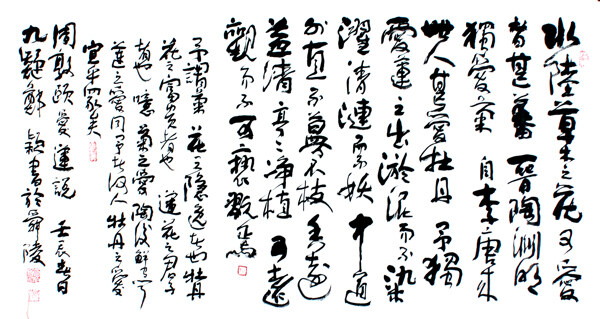 水陸草木之花可愛
者甚蕃 晉陶淵明
獨愛菊 自李唐來
世人甚愛牡丹 予獨
愛蓮之出淤泥而不染
濯清漣而不妖 中通
外直不蔓不枝香遠
益清亭亭淨植可遠
觀而不可褻翫焉
予謂菊花之隱逸者也牡丹
花之富貴者也蓮花之君子
者也噫菊之愛陶後鮮有聞
蓮之愛同予者何人牡丹之愛
宜乎眾矣
周敦頤愛蓮說 壬辰春日
九疑 書於舜陵